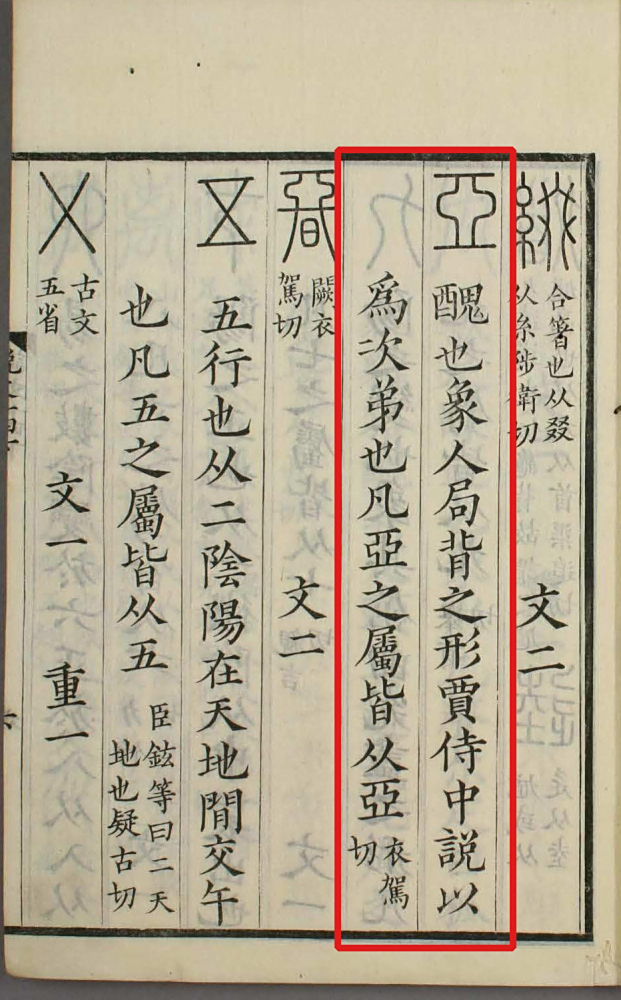 綴 合箸也从叕
从糸陟衛切 文二
亞 醜也象人局背之形賈侍中說以
爲次弟也凡亞之屬皆从亞 衣駕
切
闕衣
駕切 文二
五 五行也从二陰陽在天地閒交午
也凡五之屬皆从五 臣鉉等曰二天
地也疑古切
㐅 古文
五省 文一 重一